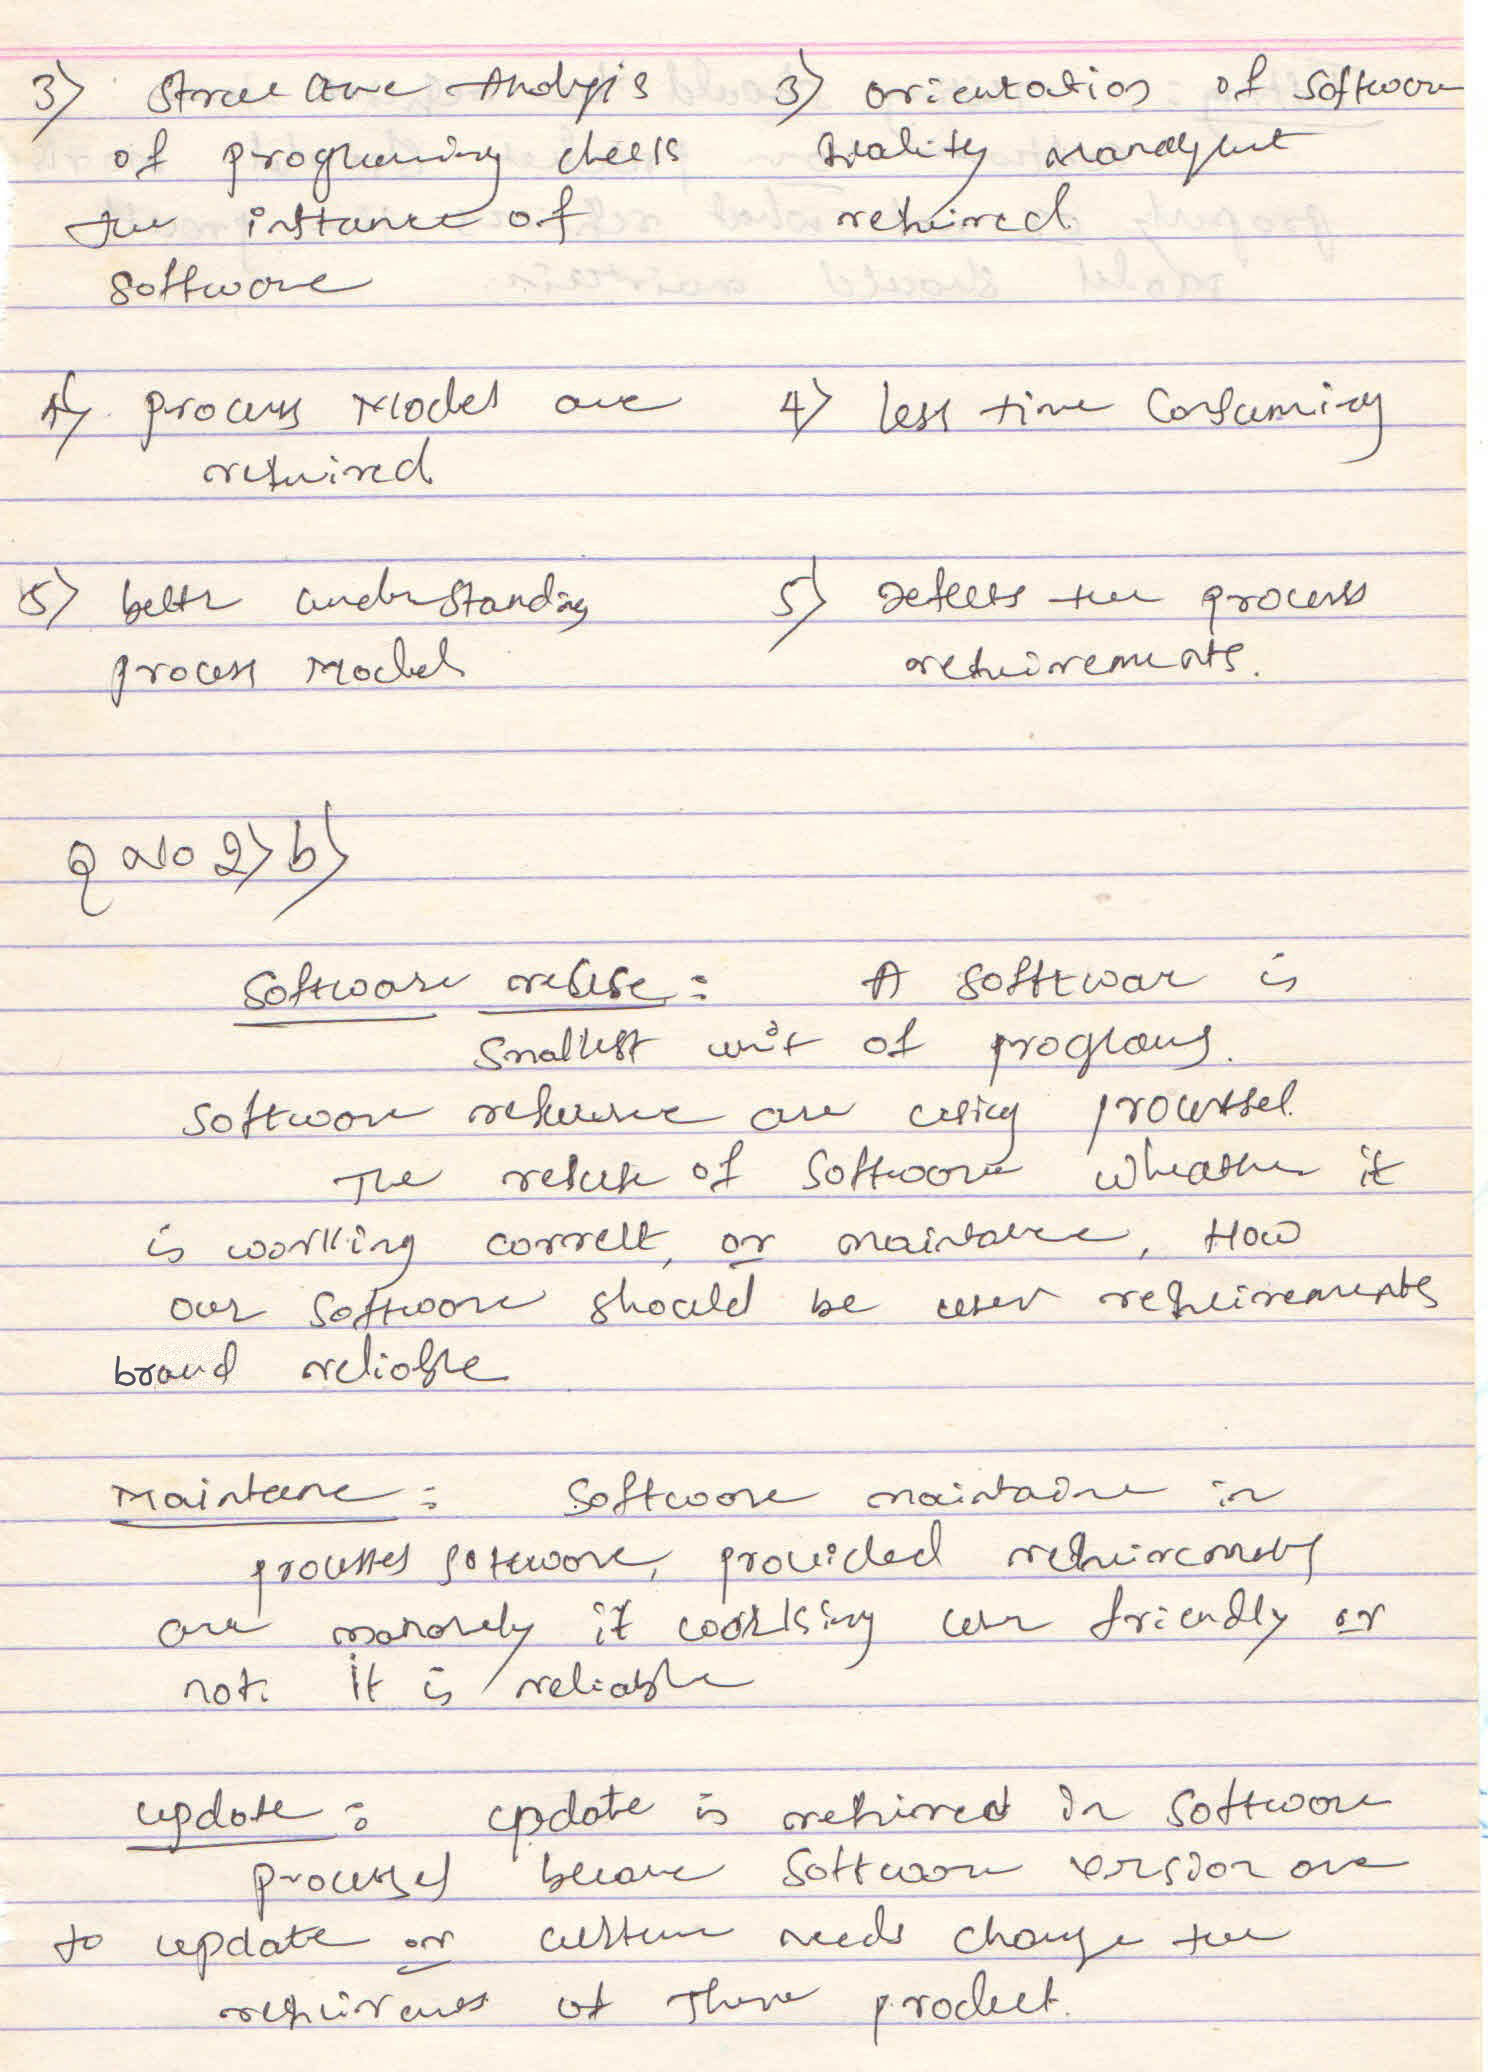 3) Structure Analysis
of programing checks
the instance of
software
3) orientation of software
Quality Managment
required
4) process Models are
required
4) less time Consuming
5) better understanding
process Models
5) Defects the process
requirements.
Q No 2) b)
Software reuse : A softwar is
smallest unit of programs.
software reuse are using processes.
The reuse of software wheather it
is working correct, or maintance, How
our software should be user requirements
brand reliable
Maintance : Software maintaine in
processes software, provided requirements
are it working user friendly or
not. It is reliable
update : update is required in software
processes because software version are
to update or custumer needs change the
requirements of There product.